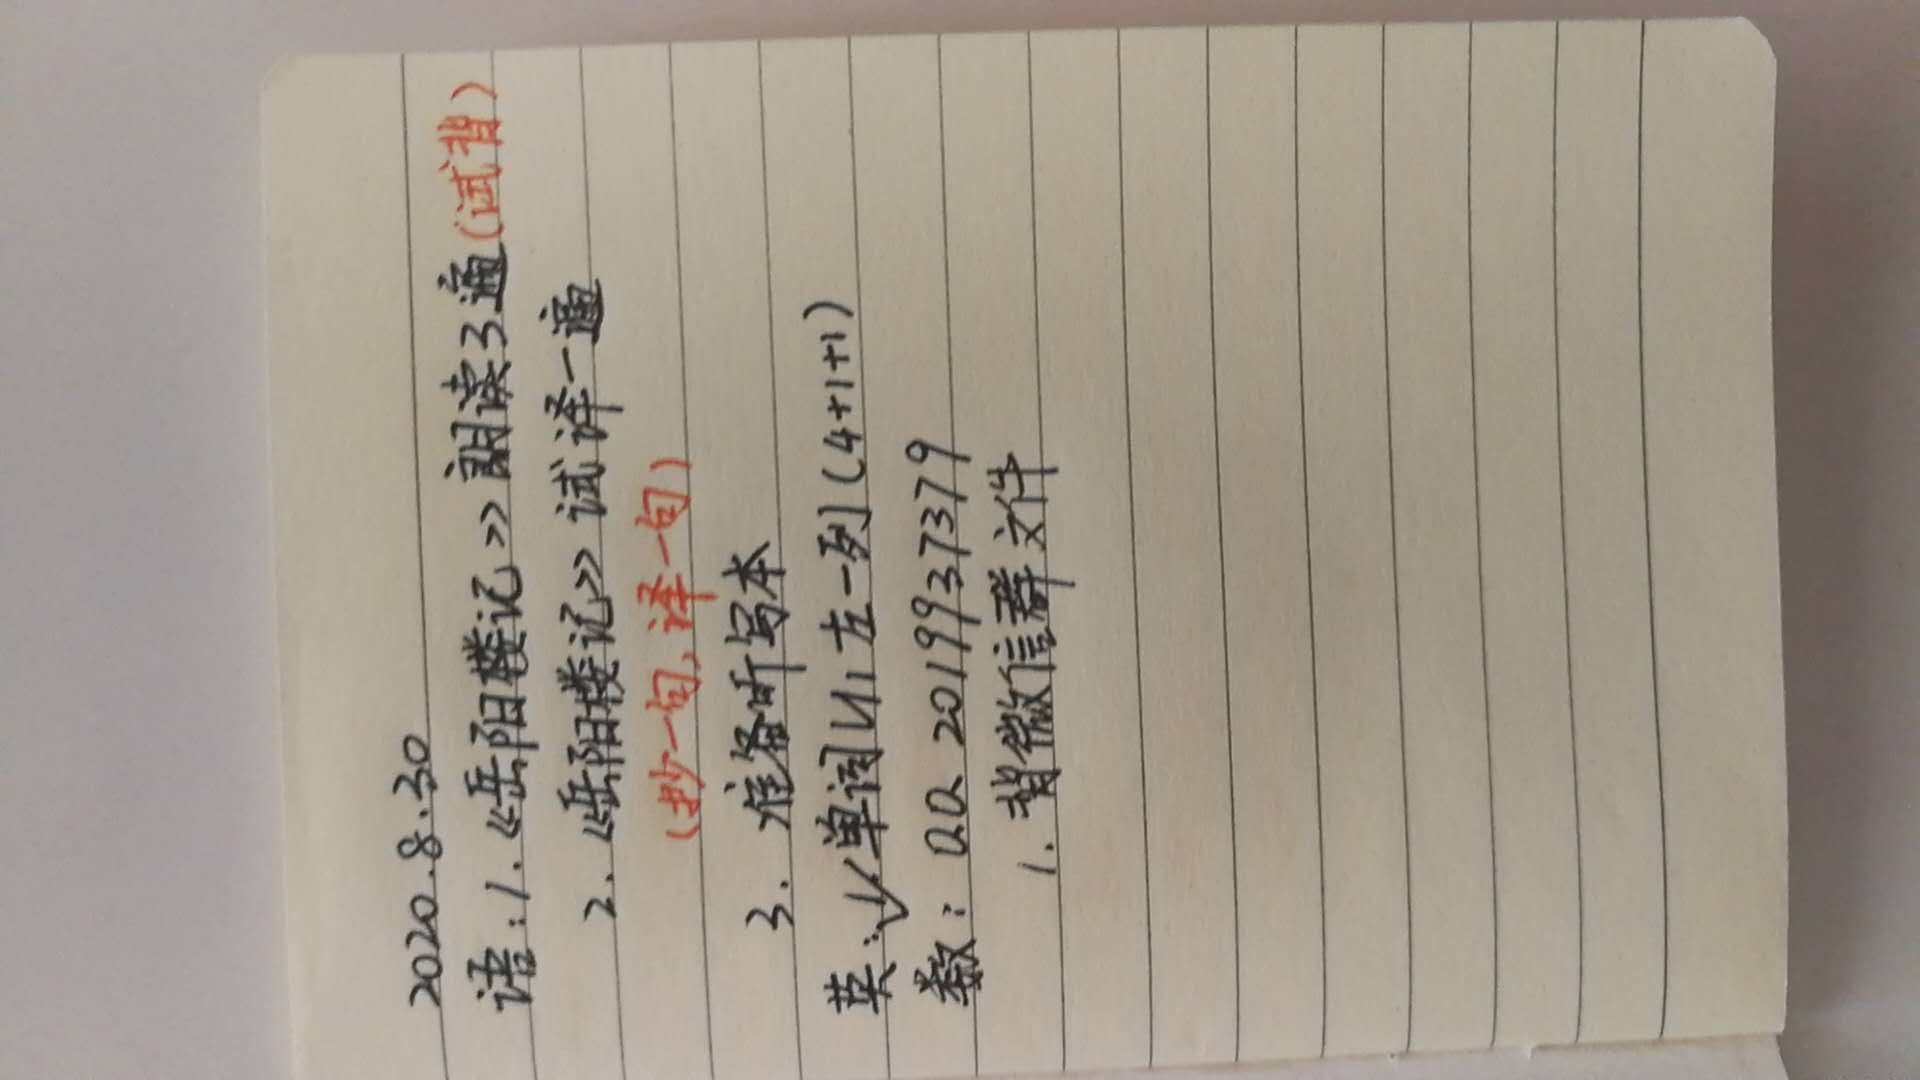 2020.8.30
语:1.《岳阳楼记》朗读3遍(试背)
2.《岳阳楼记》试译一遍
(抄一句,译一句)
3.准备听写本
英:✓.单词U1左一列(4+1+1)
数:QQ 2019937379
1.背微信群文件